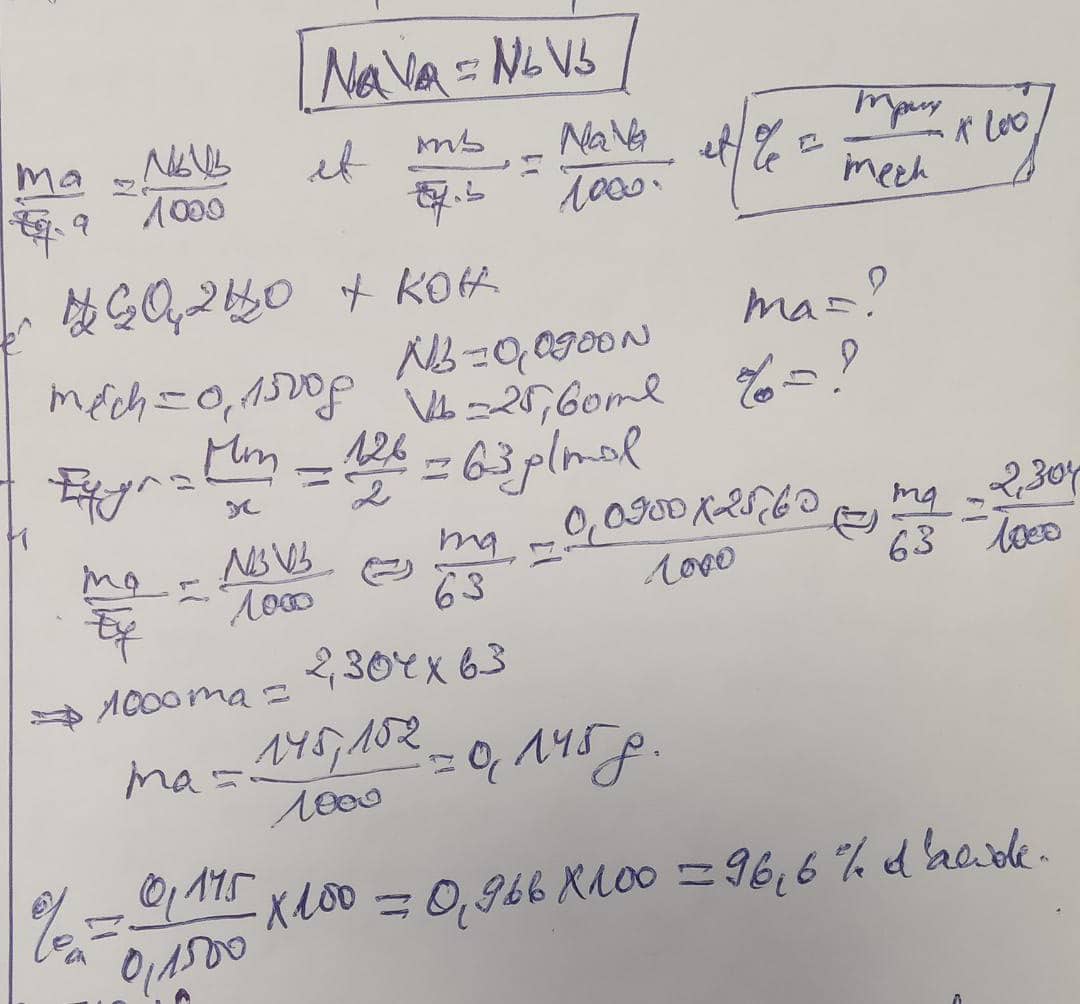 NaVa = NbVb
ma/Eq.a = NbVb/1000 et mb/Eq.b = NaVa/1000. et % = mpur/mech x 100
H2C2O4 2H2O + KOH
ma = ?
Nb = 0,0900N
méch = 0,1500g Vb = 25,60ml % = ?
Eqgr = Mm/x = 126/2 = 63 g/mol
ma/Eq = NbVb/1000 <=> ma/63 = 0,0900 x 25,60/1000 <=> ma/63 = 2,304/1000
=> 1000ma = 2,304 x 63
ma = 145,152/1000 = 0,145g.
%a = 0,145/0,1500 x 100 = 0,966 x 100 = 96,6% d'acide.